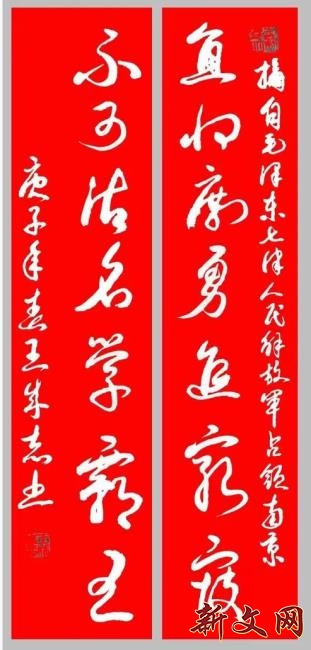 摘自毛泽东七律人民解放军占领南京
宜将剩勇追穷寇
不可沽名学霸王
庚子年春王志书
新文网